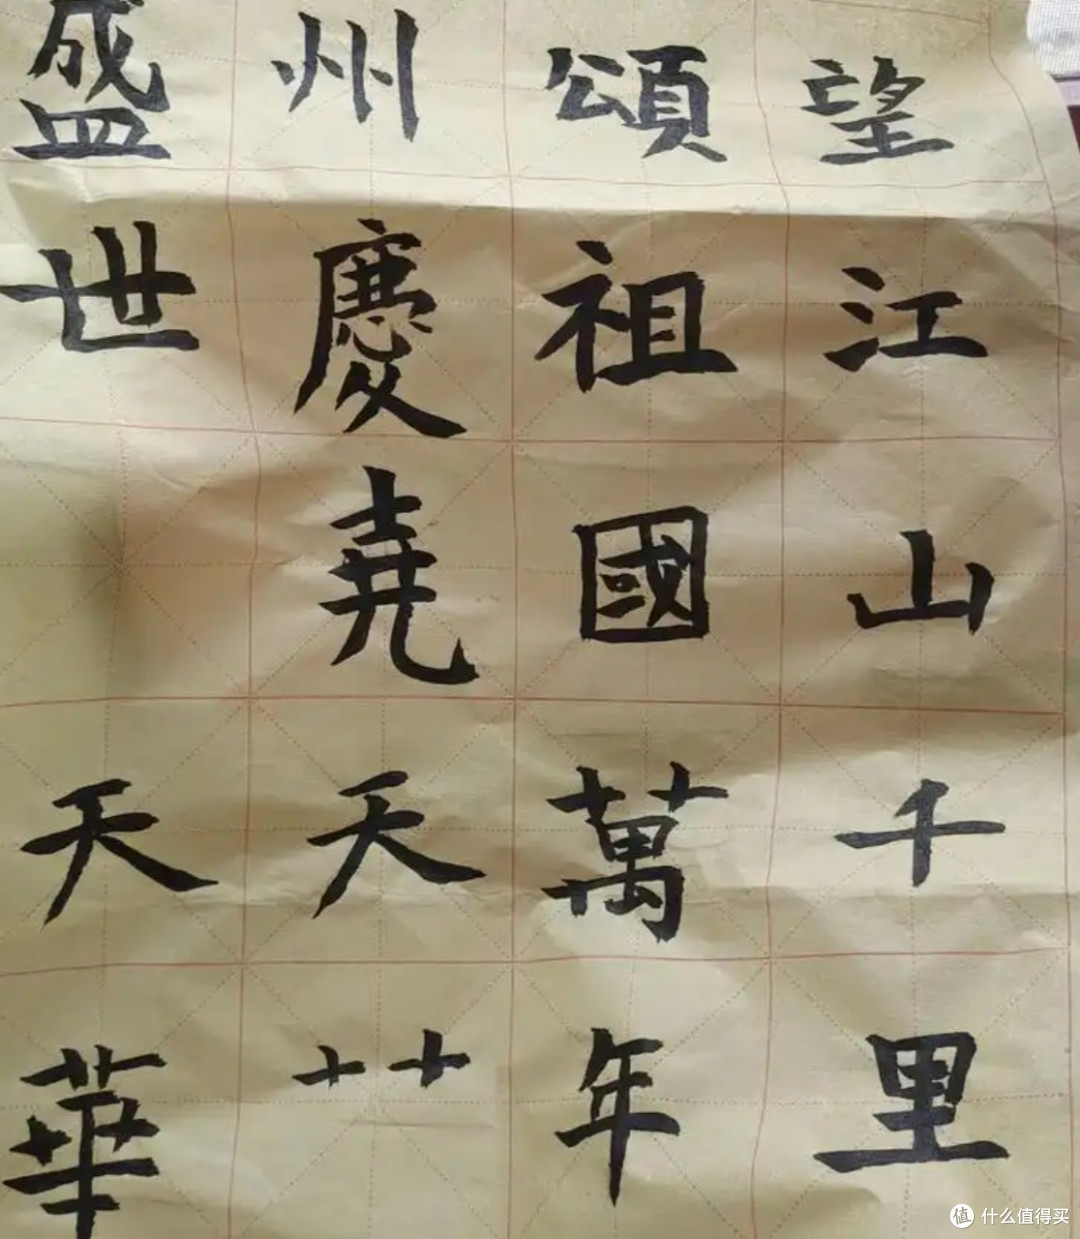 望江山千里
頌祖國萬年
州慶堯天艹
盛世 天華
值 什么值得买